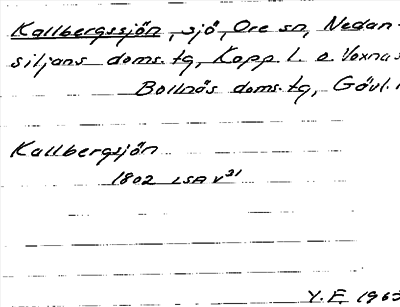 Kallbergssjön, sjö, Ore sn, Nedan-
siljans doms. tg, Kopp. l. o. Voxnas
Bollnäs doms. tg, Gävl. l
Kallbergsjön
1802 LSA V31
Y. F. 1963